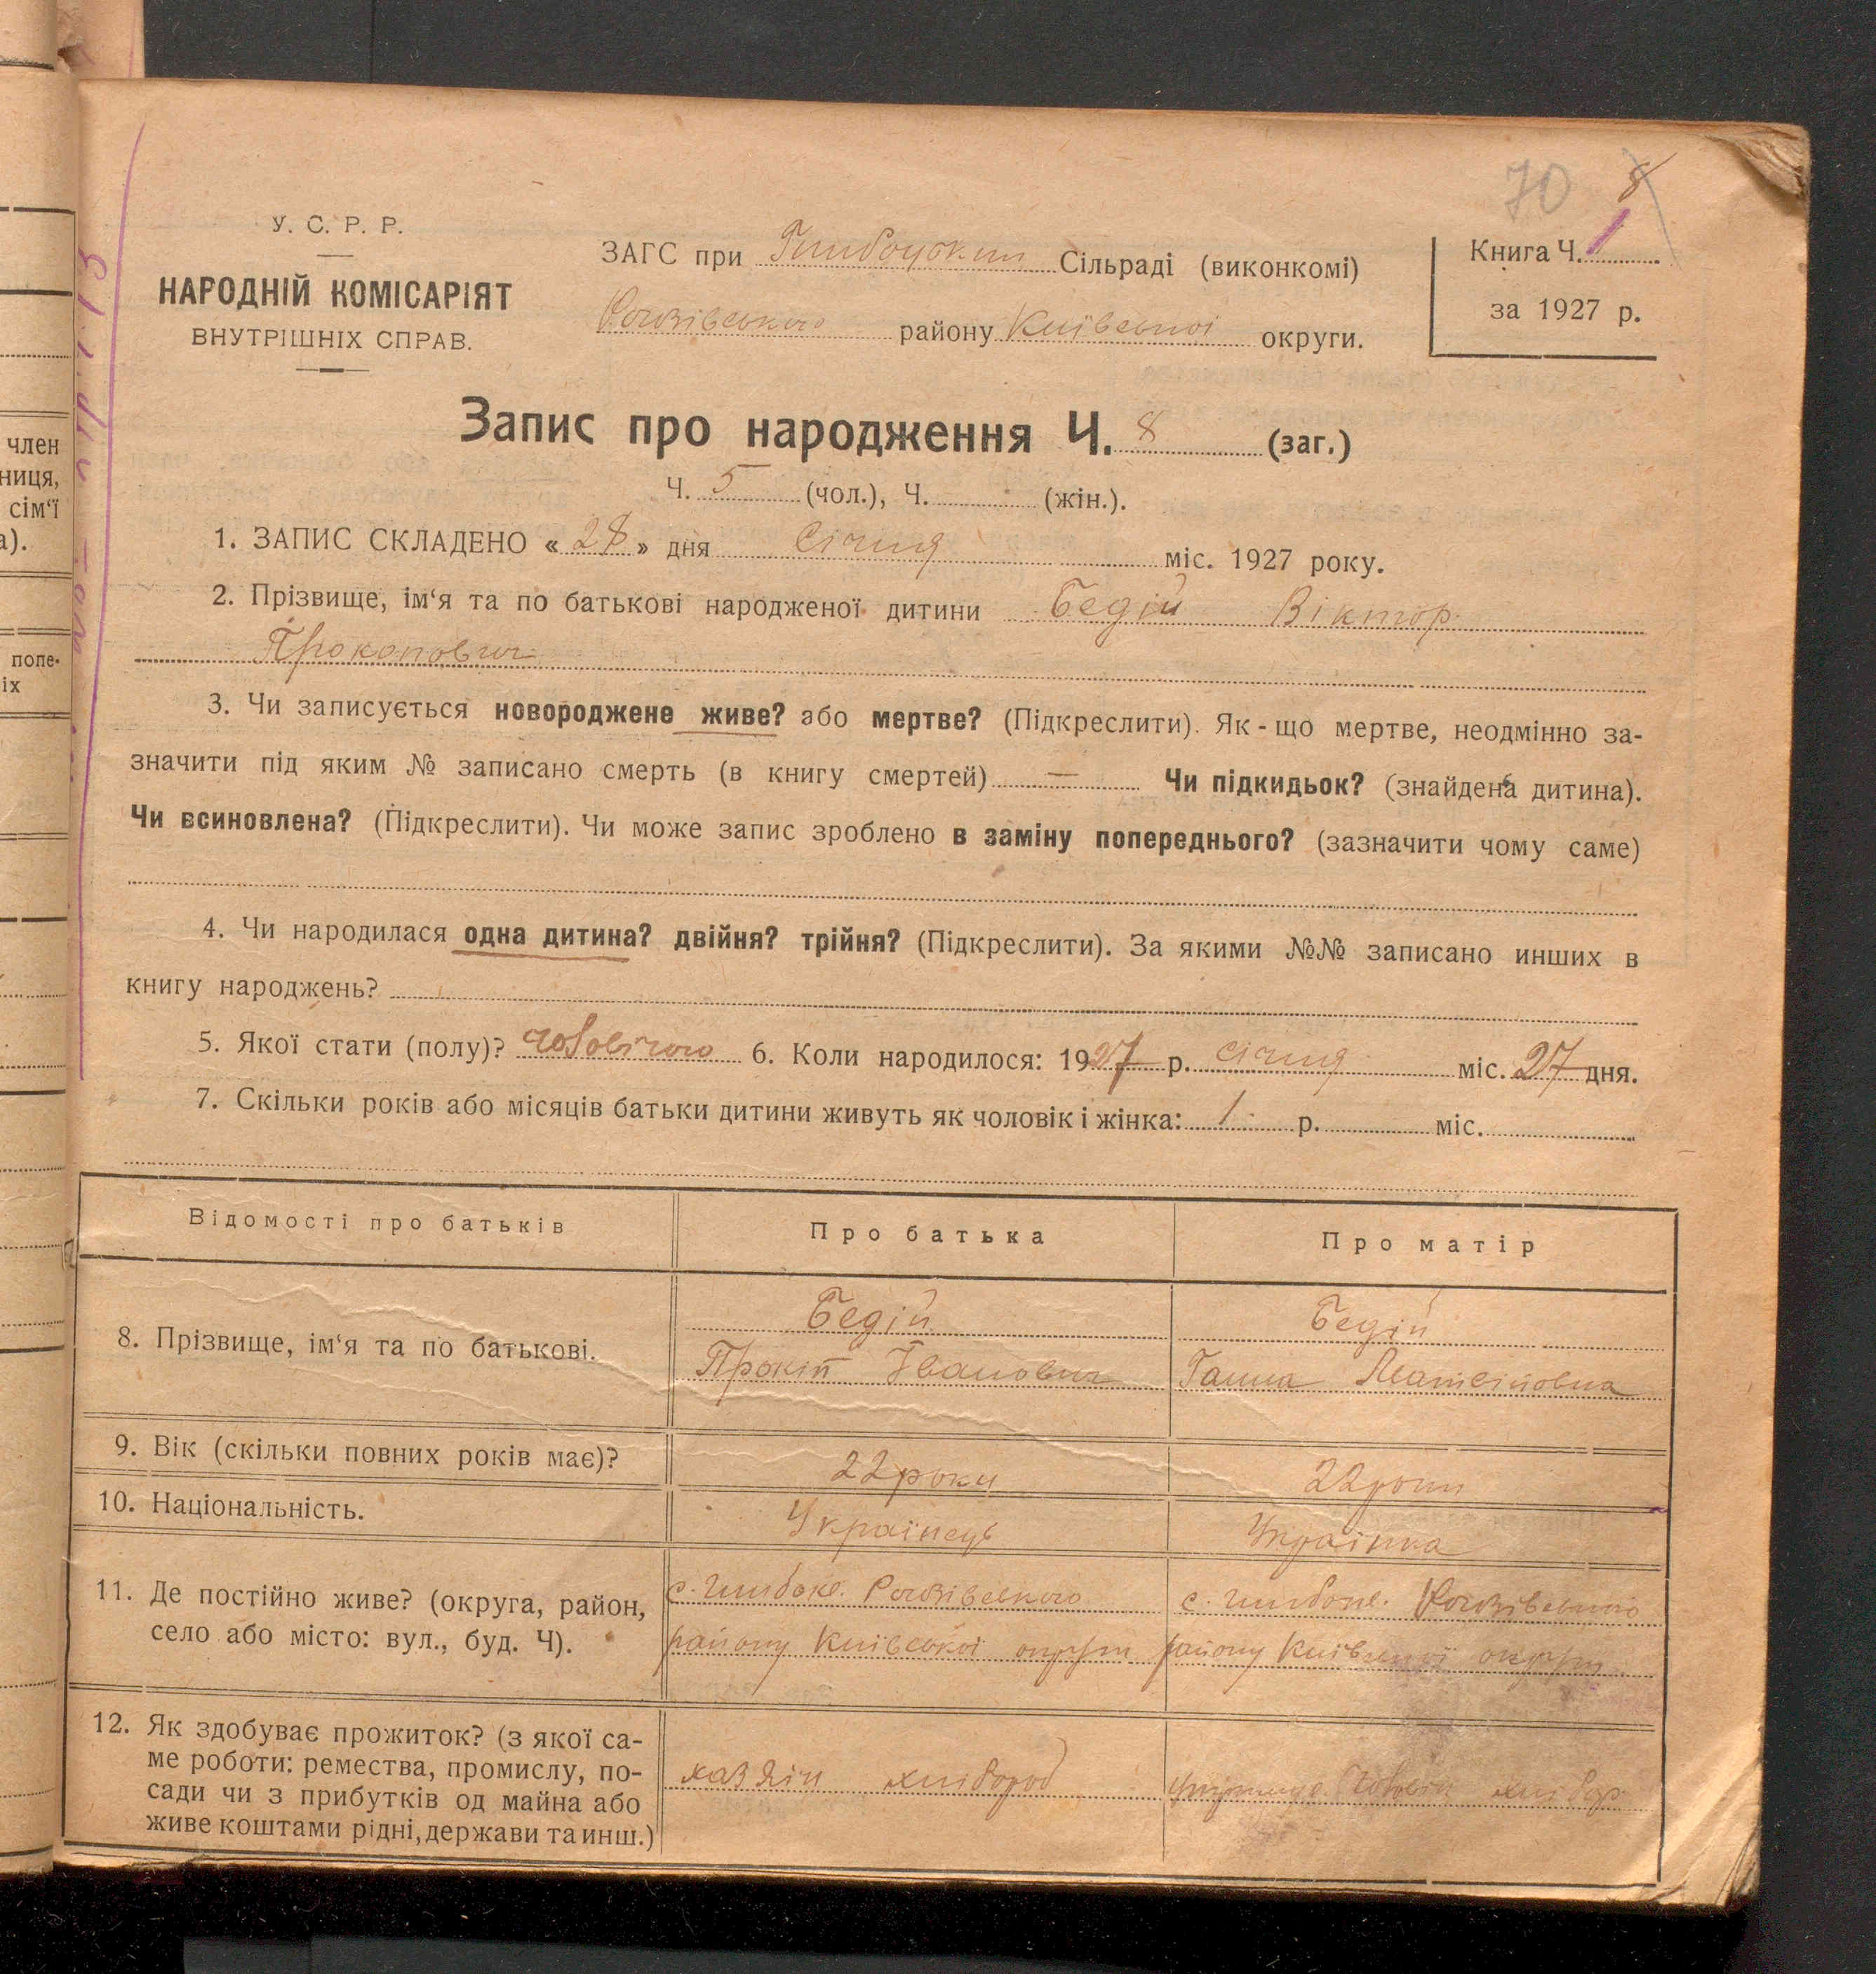 70 8
У. С. Р. Р.
НАРОДНІЙ КОМІСАРІЯТ
ВНУТРІШНІХ СПРАВ.
ЗАГС при Глибоцькій Сільраді (виконкомі)
Рогозівського району Київської округи.
Книга Ч. 1
за 1927 р.
Запис про народження Ч. 8 (заг.)
Ч. 5 (чол.), Ч. (жін.).
1. ЗАПИС СКЛАДЕНО « 28 » дня Січня міс. 1927 року.
2. Прізвище, ім‘я та по батькові народженої дитини Бедій Віктор
Прокопович
3. Чи записується новороджене живе? або мертве? (Підкреслити). Як - що мертве, неодмінно за-
значити під яким № записано смерть (в книгу смертей) — Чи підкидьок? (знайдена дитина).
Чи всиновлена? (Підкреслити). Чи може запис зроблено в заміну попереднього? (зазначити чому саме)
4. Чи народилася одна дитина? двійня? трійня? (Підкреслити). За якими №№ записано инших в
книгу народжень?
5. Якої стати (полу)? чоловічого 6. Коли народилося: 1927 р. січня міс. 27 дня.
7. Скільки років або місяців батьки дитини живуть як чоловік і жінка: 1 р. міс.
Відомості про батьків Про батька Про матір
8. Прізвище, ім‘я та по батькові.
Бедій
Прокіп Іванович
Бедій
Ганна Матвіївна
9. Вік (скільки повних років має)? 22 роки 22 роки
10. Національність. Українець Українка
11. Де постійно живе? (округа, район,
село або місто: вул., буд. Ч).
с. Глибоке. Рогозівського
району Київської округи
с. Глибоке. Рогозівського
району Київської округи
12. Як здобуває прожиток? (з якої са-
ме роботи: ремества, промислу, по-
сади чи з прибутків од майна або
живе коштами рідні, держави та инш.)
хазяін хлібороб
чоловік хлібор
член
ниця,
сім‘ї
а).
попе-
іх